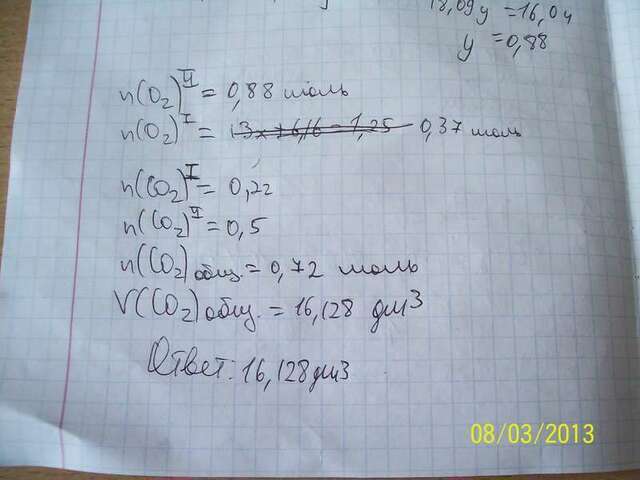 18,09y = 16,04
y = 0,88
n(O₂)ᴵᴵ = 0,88 моль
n(O₂)ᴵ = 0,37 моль
n(CO₂)ᴵ = 0,22
n(CO₂)ᴵᴵ = 0,5
n(CO₂) общ. = 0,72 моль
V(CO₂) общ. = 16,128 дм³
Ответ: 16,128 дм3
08/03/2013